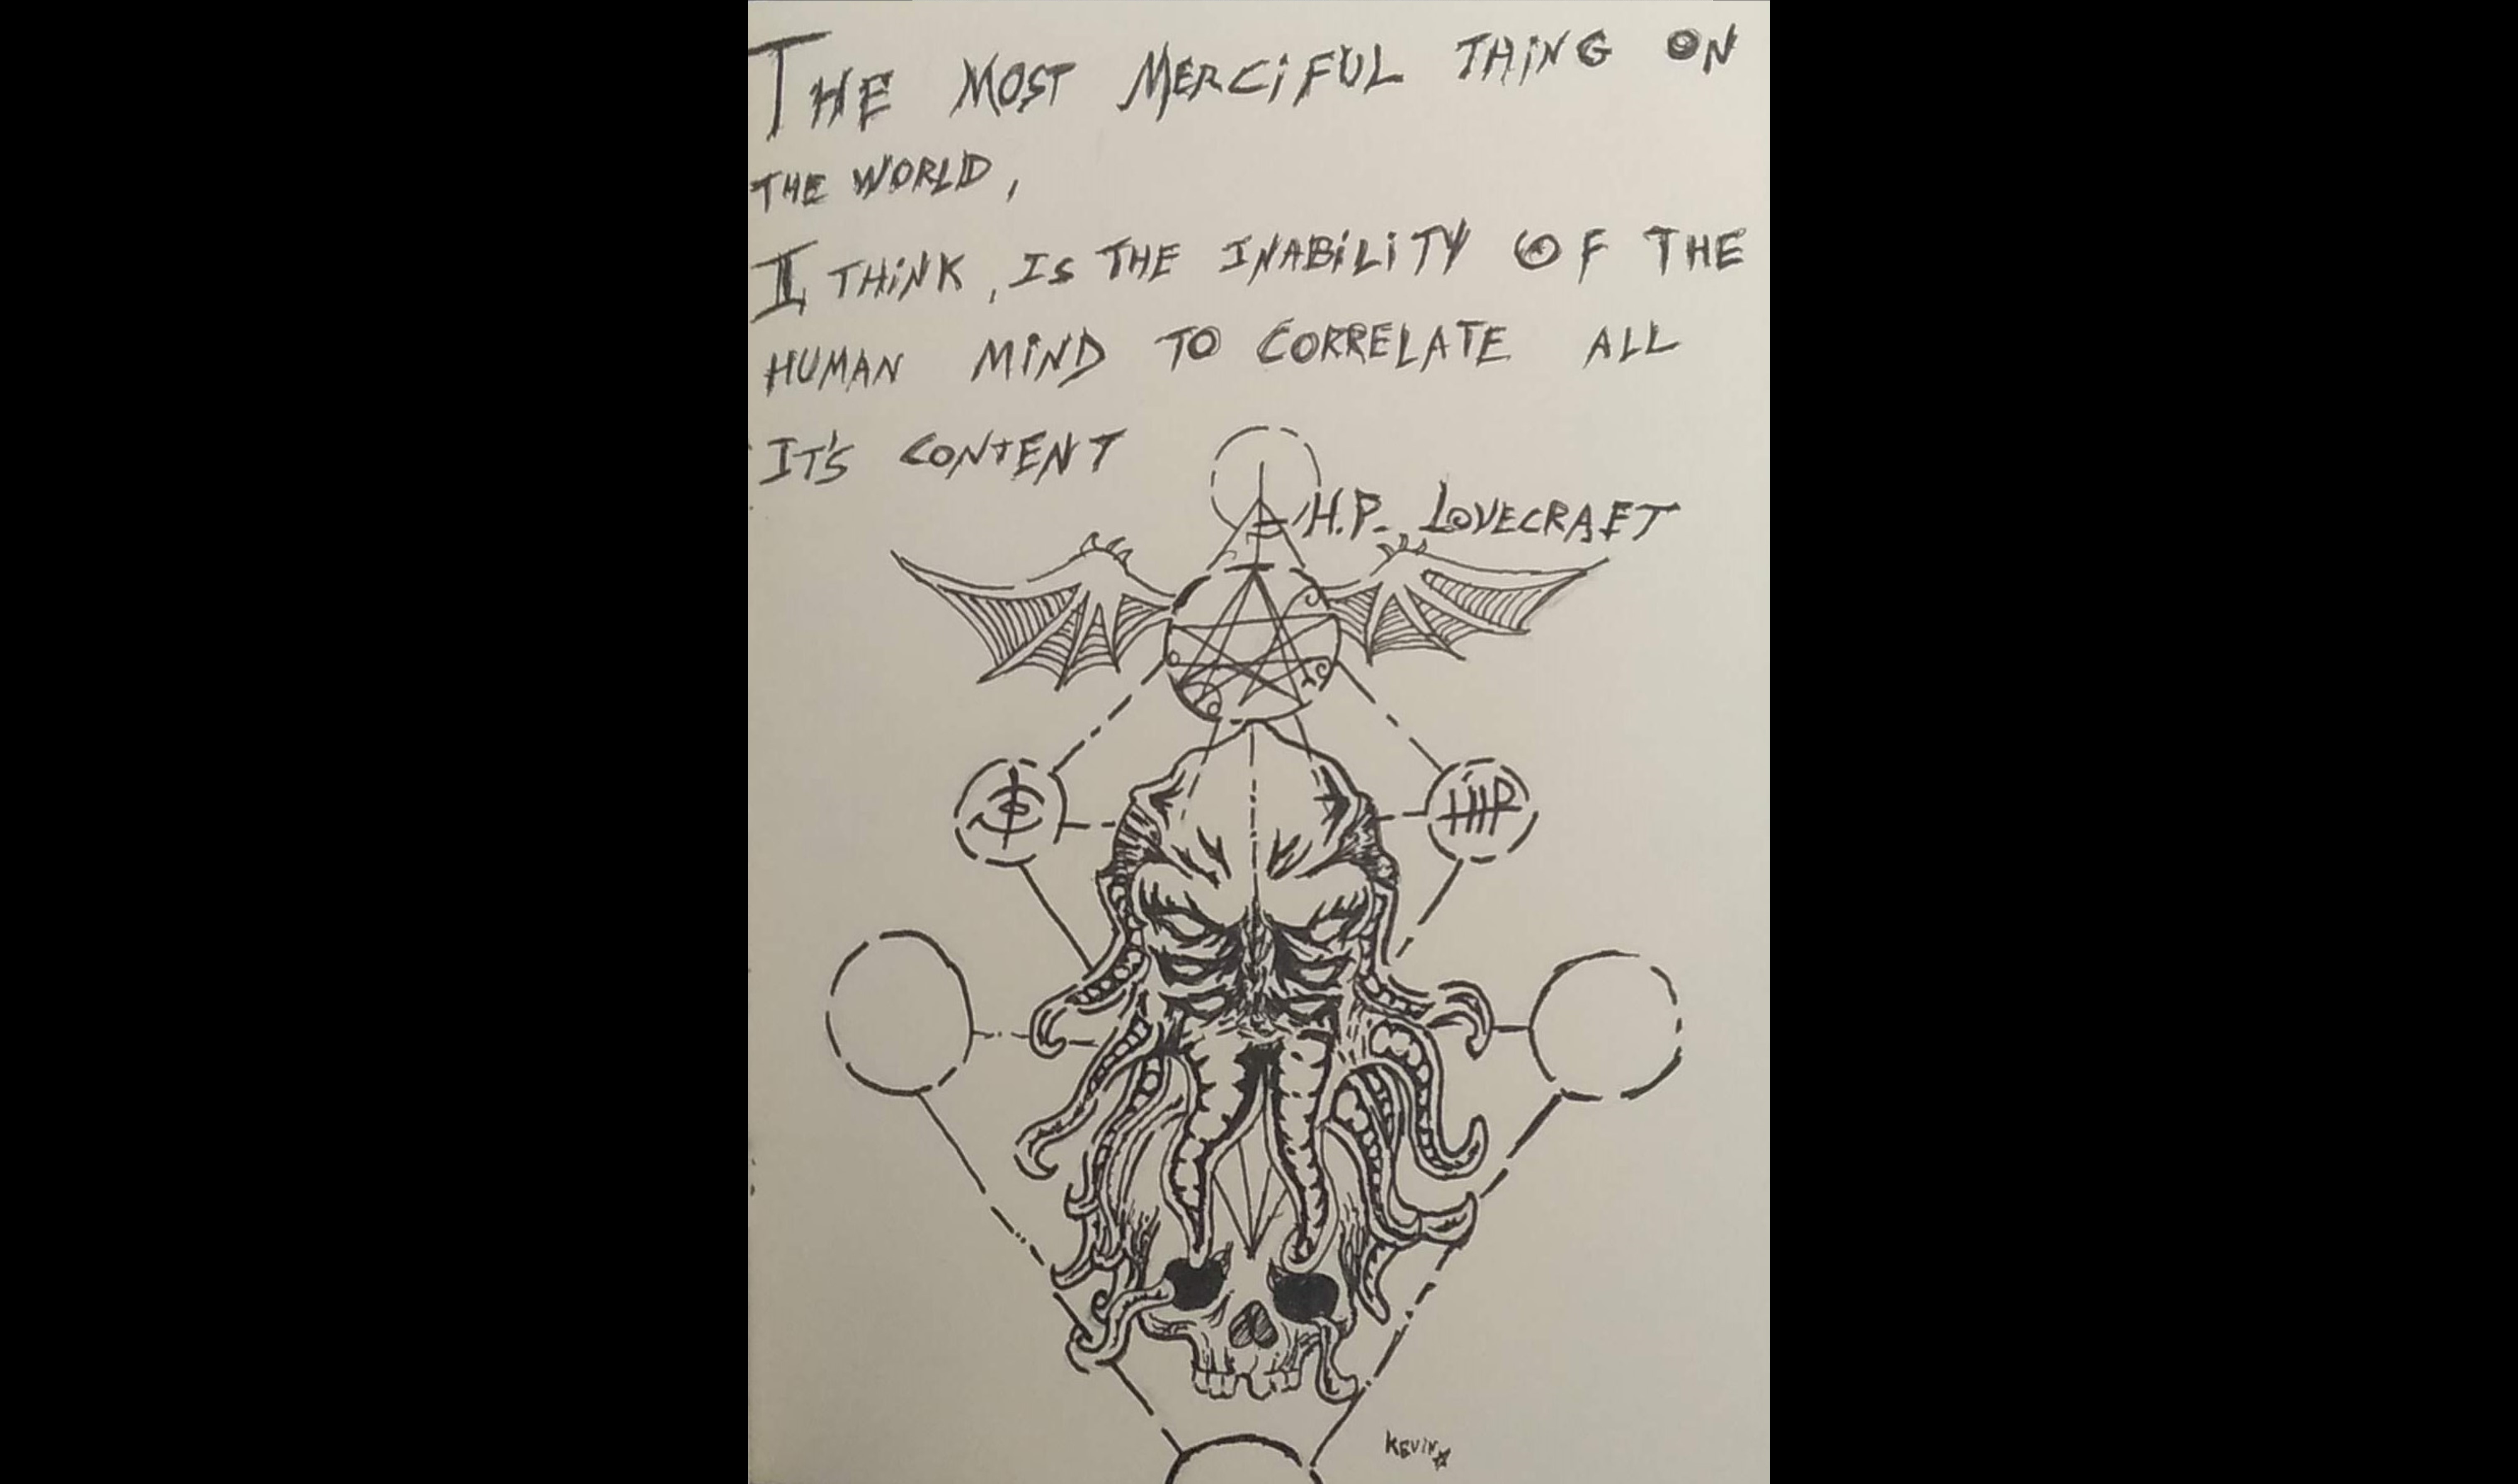 THE MOST MERCiFUL THiNG ON
THE WORLD,
I THiNK, IS THE INABiLiTY OF THE
HUMAN MiND TO CORRELATE ALL
IT'S CONTENT
H.P. LOVECRAFT
KEViN